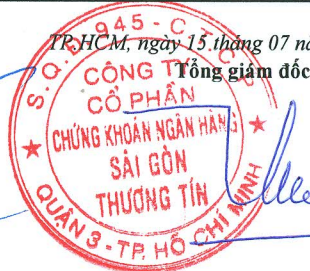 TP.HCM, ngày 15 tháng 07 nă
Tổng giám đốc
S.Q.
945 - C.
CÔNG T
CỔ PHẦN
CHỨNG KHOÁN NGÂN HÀNG
SÀI GÒN
THƯƠNG TÍN
QUẬN 3 - TP. HỒ CHÍ MINH